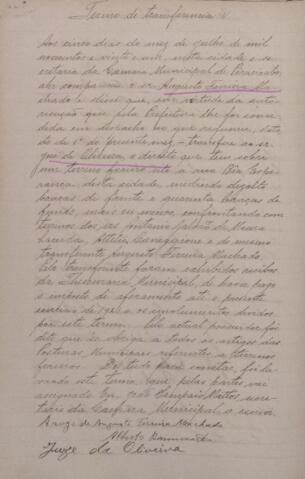 Termo de transferencia
Aos cinco dias do mez de Julho de mil
novecentos e vinte e um, nesta cidade e se-
cretaria da Camara Municipal de Piracicaba,
ahi compareceu o sr. Augusto Ferreira Ma-
chado e disse que, em virtude da auto-
risação que pela Prefeitura lhe foi conce-
dida em despacho no seu requerim., data-
do de 1º do presente mez, transfere ao sr.
de Oliveira, o direito que tem sobre
um terreno foreiro sito á rua Boa Espe-
rança, desta cidade, medindo dezoito
braças de frente e quarenta braças de
fundo, mais ou menos, confrontando com
terrenos dos srs. Antonio de Moura
Lacerda, e do mesmo
transferente Augusto Ferreira Machado.
Pelo transferente foram exhibidos recibos
da Thesouraria Municipal, de haver pago
o imposto de aforamento até o presente
exercicio de 1921 e os emolumentos devidos
por este termo. Pelo actual possuidor foi
dito que se obriga a todos os artigos das
Posturas Municipaes referentes a terrenos
foreiros. De tudo para constar, foi la-
vrado este termo, que, pelas partes, vai
assignado. Eu, João Sampaio Mattos, secre-
tario da Camara Municipal, o escrevi.
A rogo de Augusto Ferreira Machado
Alberto
Jorge de Oliveira